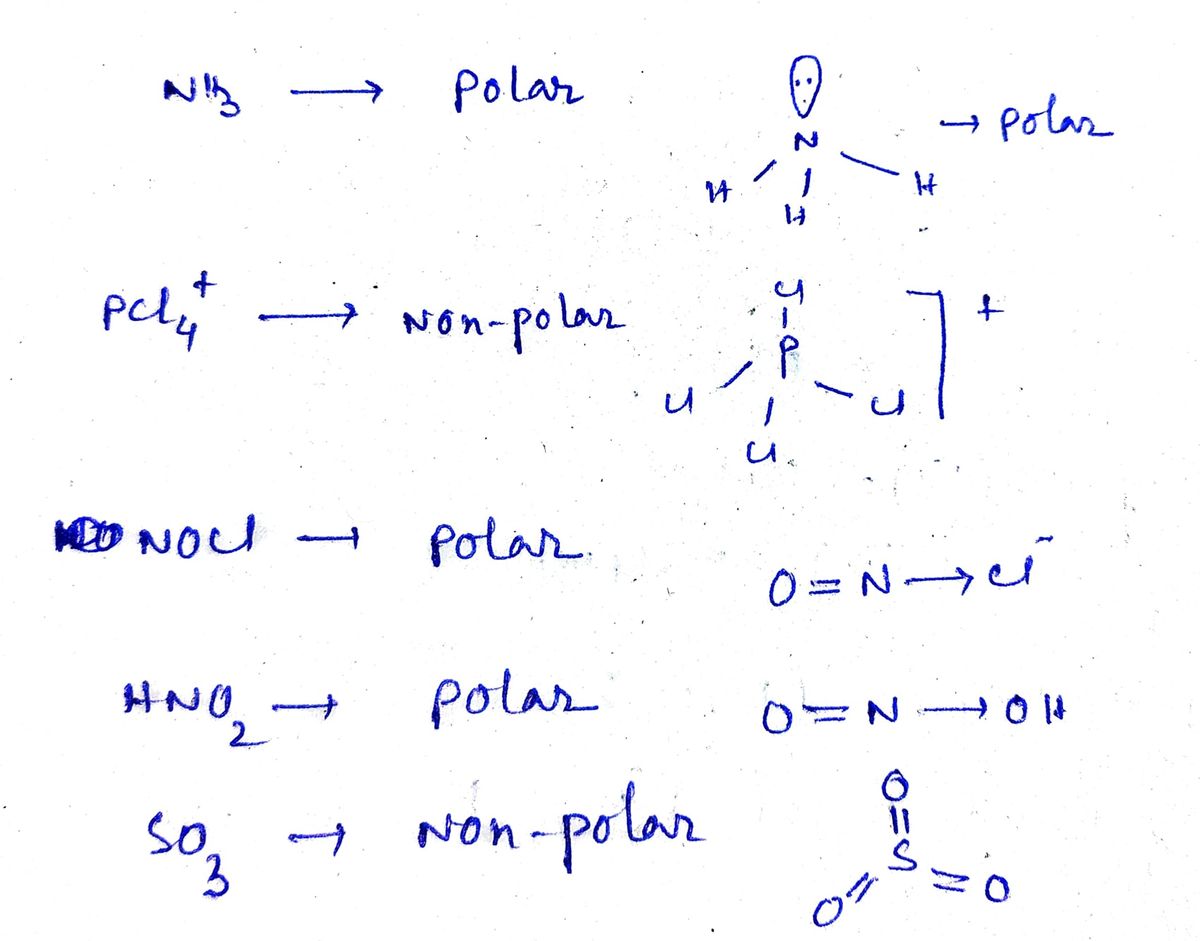 NH3 → Polar
N
H H H → polar
PCl4+ → Non-polar
Cl
P
Cl Cl Cl ] +
NOCl → Polar.
O = N → Cl-
HNO2 → Polar
O = N → OH
SO3 → Non-polar
O
||
S
O = = O